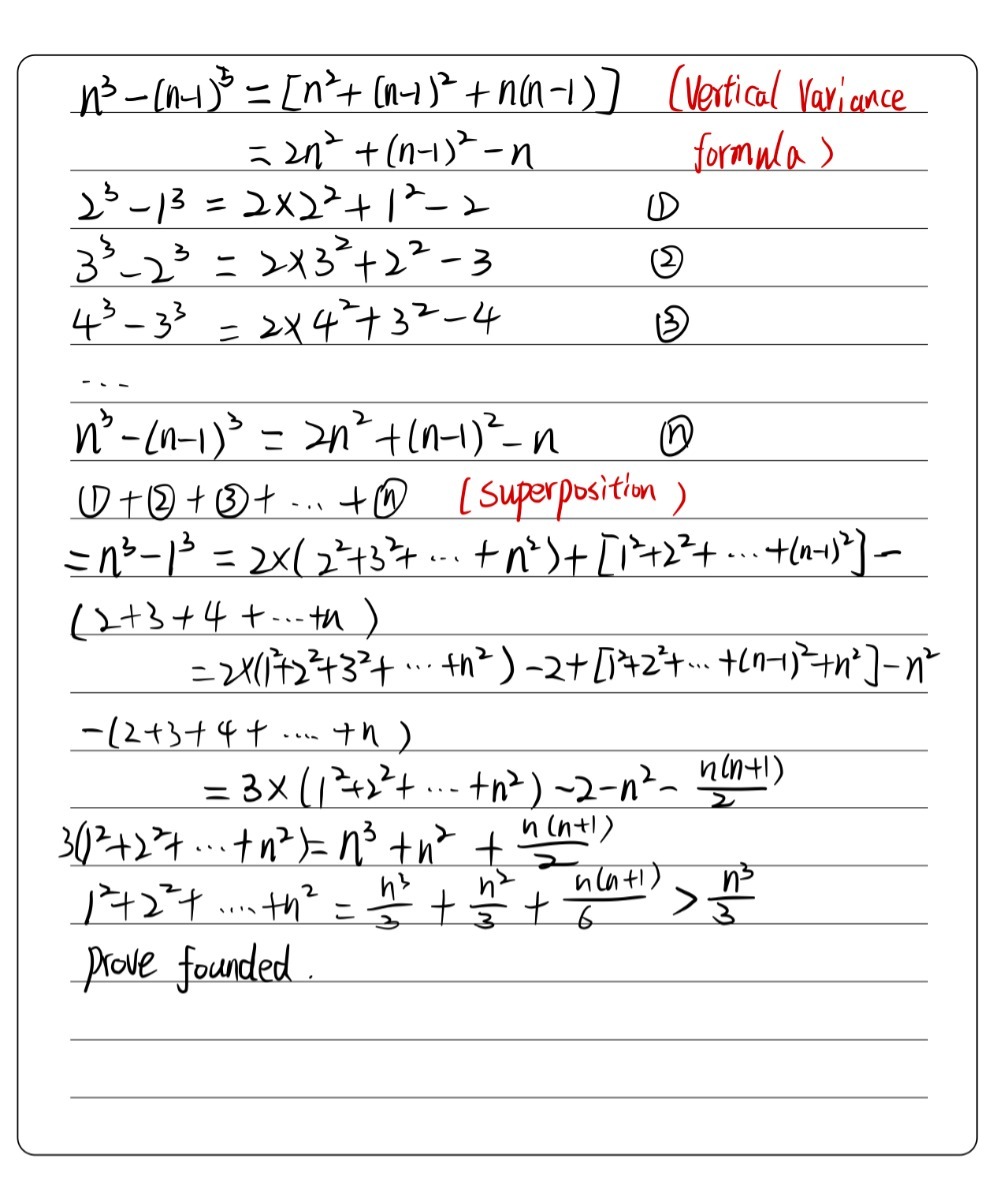 n³-(n-1)³ = [n²+(n-1)²+n(n-1)] (Vertical Variance
= 2n²+(n-1)²-n formula)
2³-1³ = 2×2²+1²-2 ①
3³-2³ = 2×3²+2²-3 ②
4³-3³ = 2×4²+3²-4 ③
...
n³-(n-1)³ = 2n²+(n-1)²-n ⓝ
①+②+③+...+ⓝ (superposition)
=n³-1³ = 2×(2²+3²+...+n²)+[1²+2²+...+(n-1)²]-
(2+3+4+...+n)
=2×(1²+2²+3²+...+n²)-2+[1²+2²+...+(n-1)²+n²]-n²
-(2+3+4+....+n)
=3×(1²+2²+...+n²)-2-n²-n(n+1)/2
3(1²+2²+...+n²)=n³+n²+n(n+1)/2
1²+2²+....+n²=n³/3+n²/3+n(n+1)/6>n³/3
prove founded.